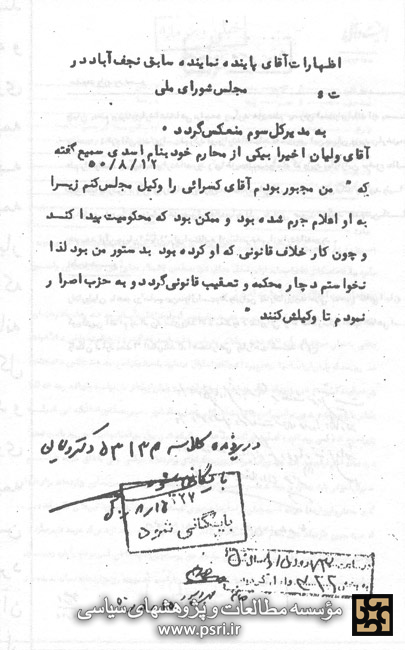 اظهارات آقای پاینده نماینده سابق نجف آباد در
مجلس شورای ملی
به مدیر کل سوم منعکس گردد
آقای ولیان اخیرا بیکی از محارم خود بنام اسدی سمیع گفته
۵۰/۸/۱۲
که " من مجبور بودم آقای کسرائی را وکیل مجلس کنم زیرا
به او اعلام جرم شده بود و ممکن بود که محکومیت پیدا کند
و چون کار خلاف قانونی که او کرده بود بدستور من بود لذا
نخواستم دچار محکمه و تعقیب قانونی گردد و به حزب اصرار
نمودم تا وکیلش کنند "
در پرونده کلاسه
بایگانی شود
بایگانی شود
مؤسسه مطالعات و پژوهشهای سیاسی
www.psri.ir